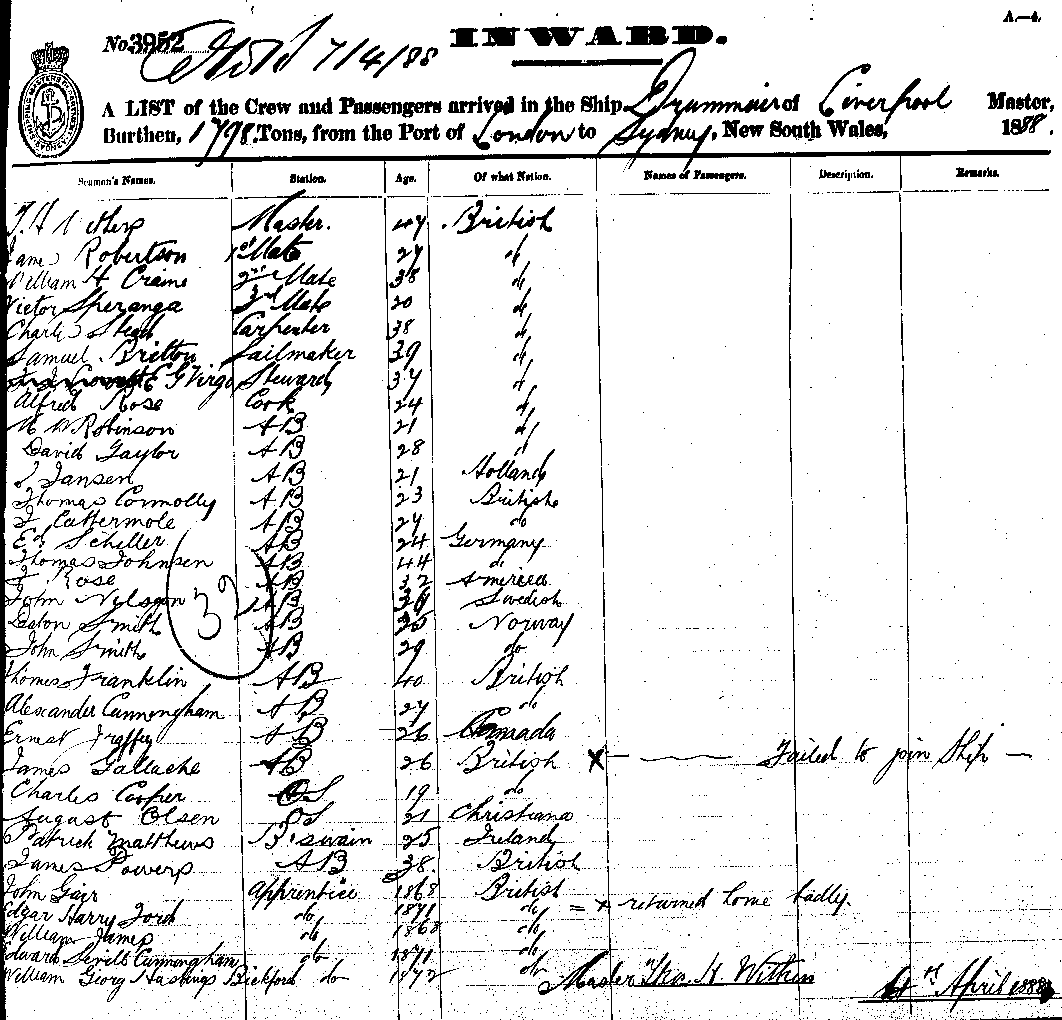 A.—4.
No. 3952 INWARD.
7/4/88
A LIST of the Crew and Passengers arrived in the Ship Drummuir of Liverpool Master,
Burthen, 1798 Tons, from the Port of London to Sydney, New South Wales, 1888.
Seaman's Names. Station. Age. Of what Nation. Names of Passengers. Description. Remarks.
T. H Withers Master. 47 British
James Robertson 1st Mate 27 do
William H Craine 2nd Mate 38 do
Victor Speranga 3rd Mate 20 do
Charles Stead Carpenter 38 do
Samuel Britton Sailmaker 39 do
E G Virgo Steward 37 do
Alfred Rose Cook 24 do
W Robinson AB 21 do
David Taylor AB 28 do
J Jansen AB 21 Holland
Thomas Connolly AB 23 British
J Cattermole AB 27 do
Ed Schiller AB 24 Germany
Thomas Johnsen AB 44 do
Rose AB 32 America
John Nylsson AB Swedish
Smith AB Norway
John Smith AB 29 do
32
Thomas Franklin AB 40 British
Alexander Cunningham AB 27 do
Ernest AB 26 Canada
James Gallache AB 26 British X — Failed to join Ship —
Charles Cooper OS 19 do
August Olsen OS 21 Christiana
Patrick Matthews B'swain 25 Ireland
James Powers AB 38 British
John Garr Apprentice 1868 British
Edgar Harry Ford do 1871 do = x returned home badly.
William James do 1868 do
Edward Sevill Cunningham do 1871 do
William Georg Hastings Bickford do 1872 do
Master Thos. H. Withers
April 1888